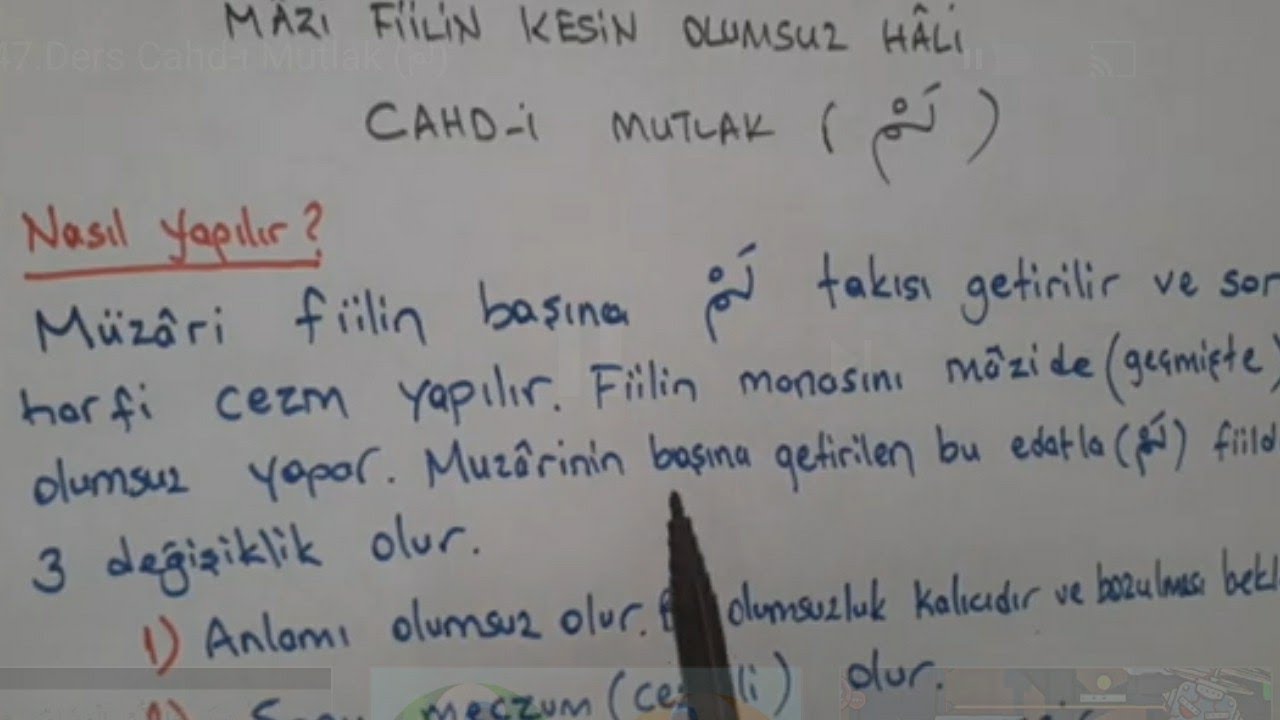 MÂZİ FİİLİN KESİN OLUMSUZ HÂLİ
47.Ders Cahd-ı Mutlak (لم)
CAHD-i MUTLAK (لَمْ)
Nasıl yapılır?
Müzâri fiilin başına لَمْ takısı getirilir ve son
harfi cezm yapılır. Fiilin manasını mâzide (geçmişte)
olumsuz yapar. Muzârinin başına getirilen bu edatla (لَمْ) fiild
3 değişiklik olur.
1) Anlamı olumsuz olur. olumsuzluk kalıcıdır ve bozulması bekl
meczum ( ) olur.